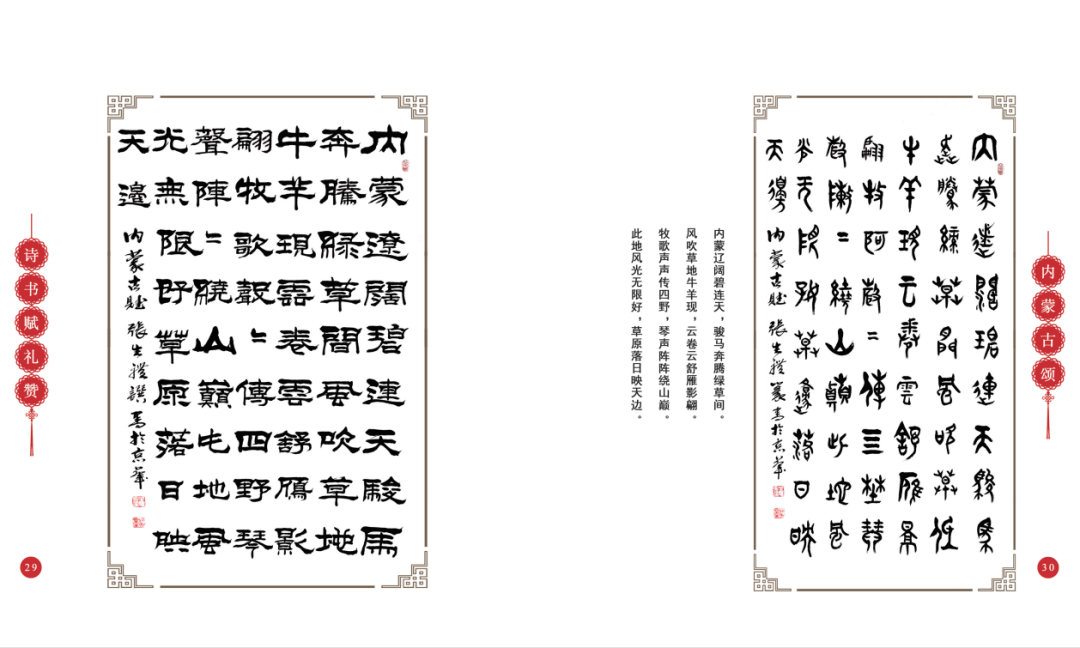 诗书赋礼赞
29
内蒙遼闊碧連天駿馬
奔騰緑草間風吹草地
牛羊現雲卷雲舒鴈影
翩牧歌聲〻傳四野琴
聲陣〻繞山巔此地風
光無限好草原落日映
天邊
内蒙古賦 張生禮撰書於京華
内蒙辽阔碧连天，骏马奔腾绿草间。
风吹草地牛羊现，云卷云舒雁影翩。
牧歌声声传四野，琴声阵阵绕山巅。
此地风光无限好，草原落日映天边。
内蒙遼闊碧連天駿馬
奔騰緑草間風吹草地
牛羊現云卷雲舒雁景
翩牧歌聲〻傳四野琴
聲陣〻繞山巔此地風
光无限好草原落日映
天邊
内蒙古賦 張生禮篆書於京華
内蒙古颂
30